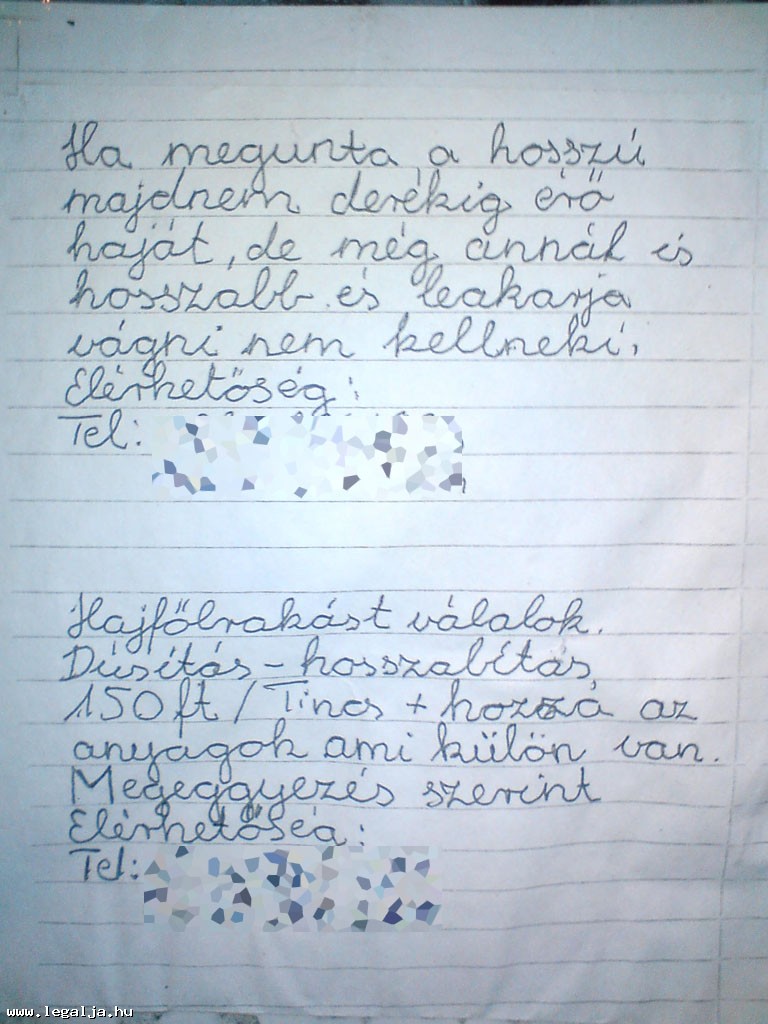 Ha megunta a hosszú
majdnem derékig érő
haját, de még annál is
hosszabb és leakarja
vágni nem kellneki.
Elérhetőség:
Tel:
Hajfőlrakást válalok.
Dúsítás - hosszabítás
150 ft / Tincs + hozzá az
anyagok ami külön van.
Megeggyezés szerint
Elérhetőség:
Tel:
www.legalja.hu